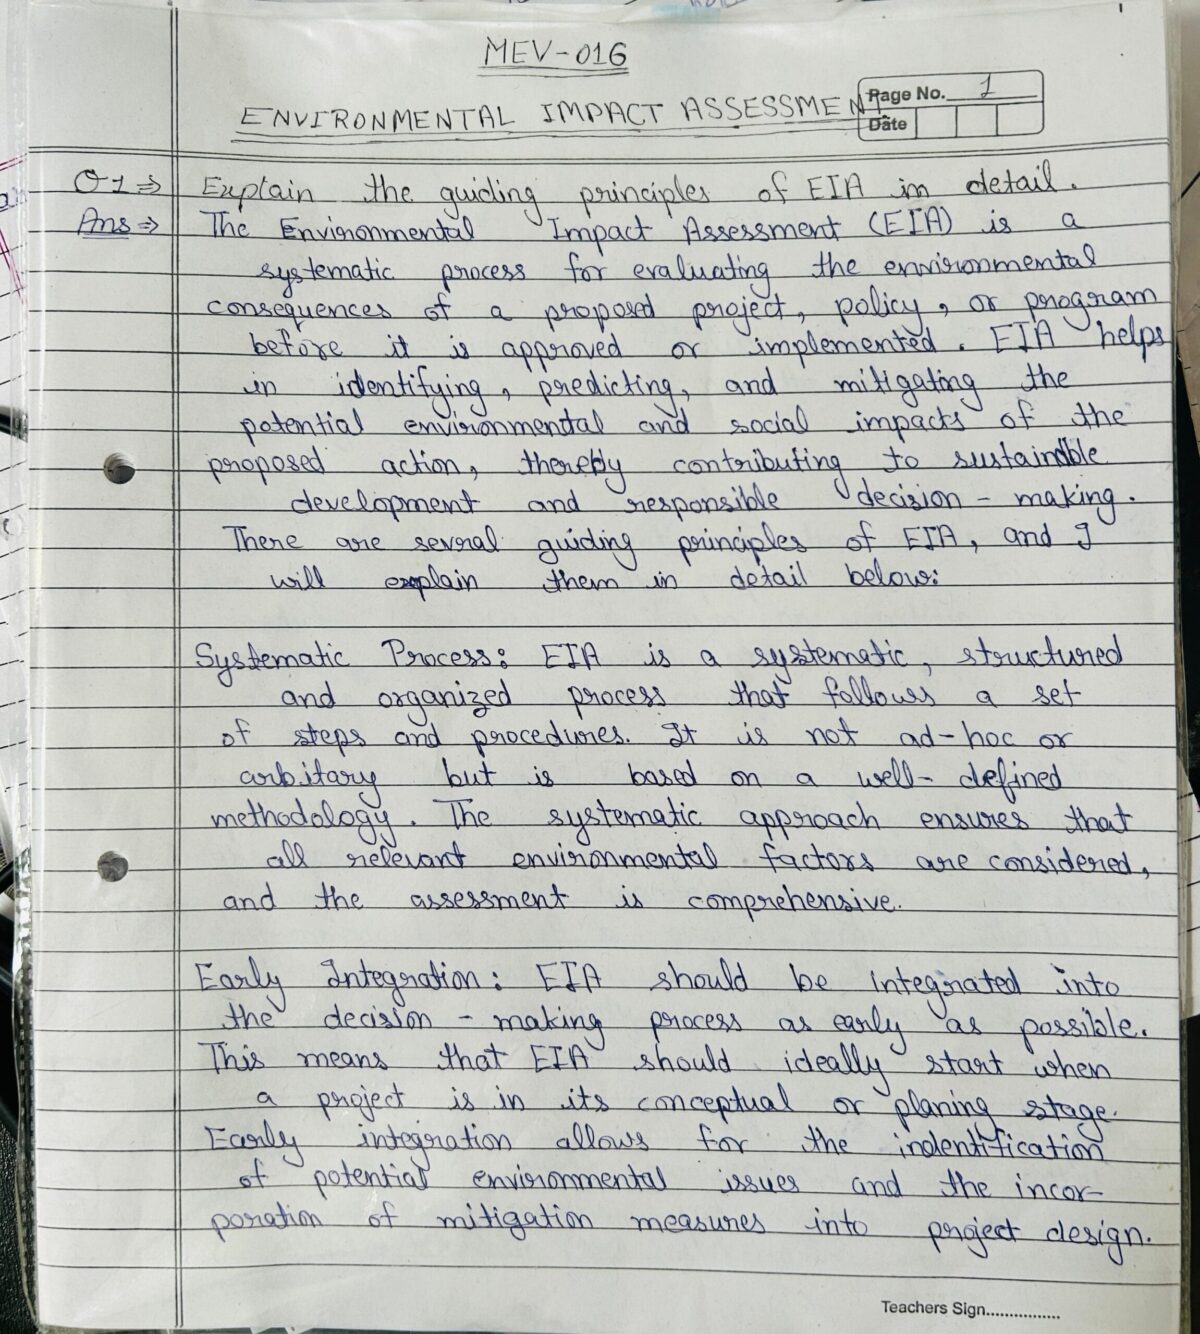 MEV-016
ENVIRONMENTAL IMPACT ASSESSMENT
Page No. 1
Date
Q1⇒ Explain the guiding principles of EIA in detail.
Ans⇒ The Environmental Impact Assessment (EIA) is a
systematic process for evaluating the environmental
consequences of a proposed project, policy, or program
before it is approved or implemented. EIA helps
in identifying, predicting, and mitigating the
potential environmental and social impacts of the
proposed action, thereby contributing to sustainable
development and responsible decision - making.
There are several guiding principles of EIA, and I
will explain them in detail below:
Systematic Process: EIA is a systematic, structured
and organized process that follows a set
of steps and procedures. It is not ad-hoc or
arbitary but is based on a well- defined
methodology. The systematic approach ensures that
all relevant environmental factors are considered,
and the assessment is comprehensive.
Early Integration: EIA should be integrated into
the decision - making process as early as possible.
This means that EIA should ideally start when
a project is in its conceptual or planing stage.
Early integration allows for the indentification
of potential environmental issues and the incor-
poration of mitigation measures into project design.
Teachers Sign................